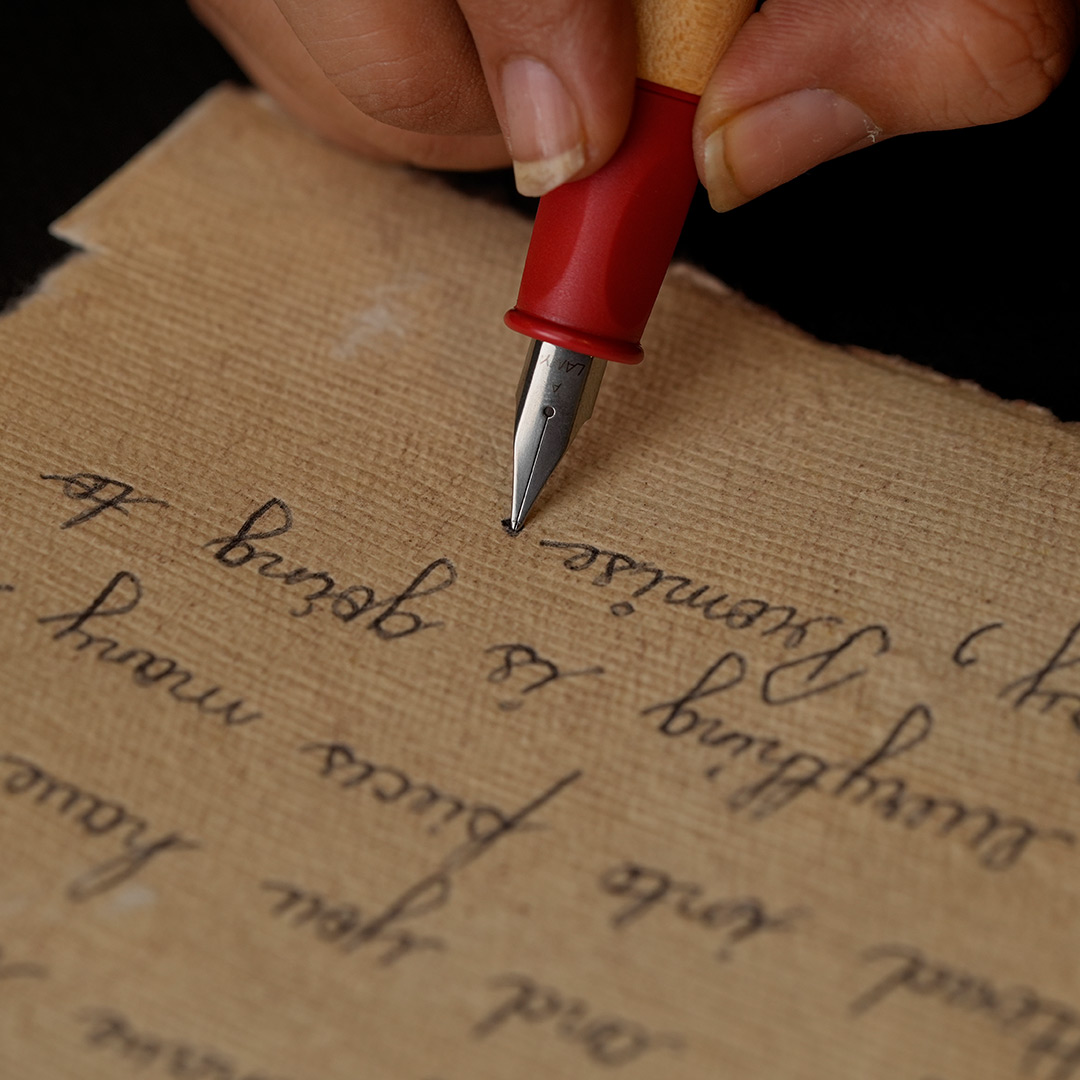 and you have
into pieces many
everything is going to
, Promise
LAMY